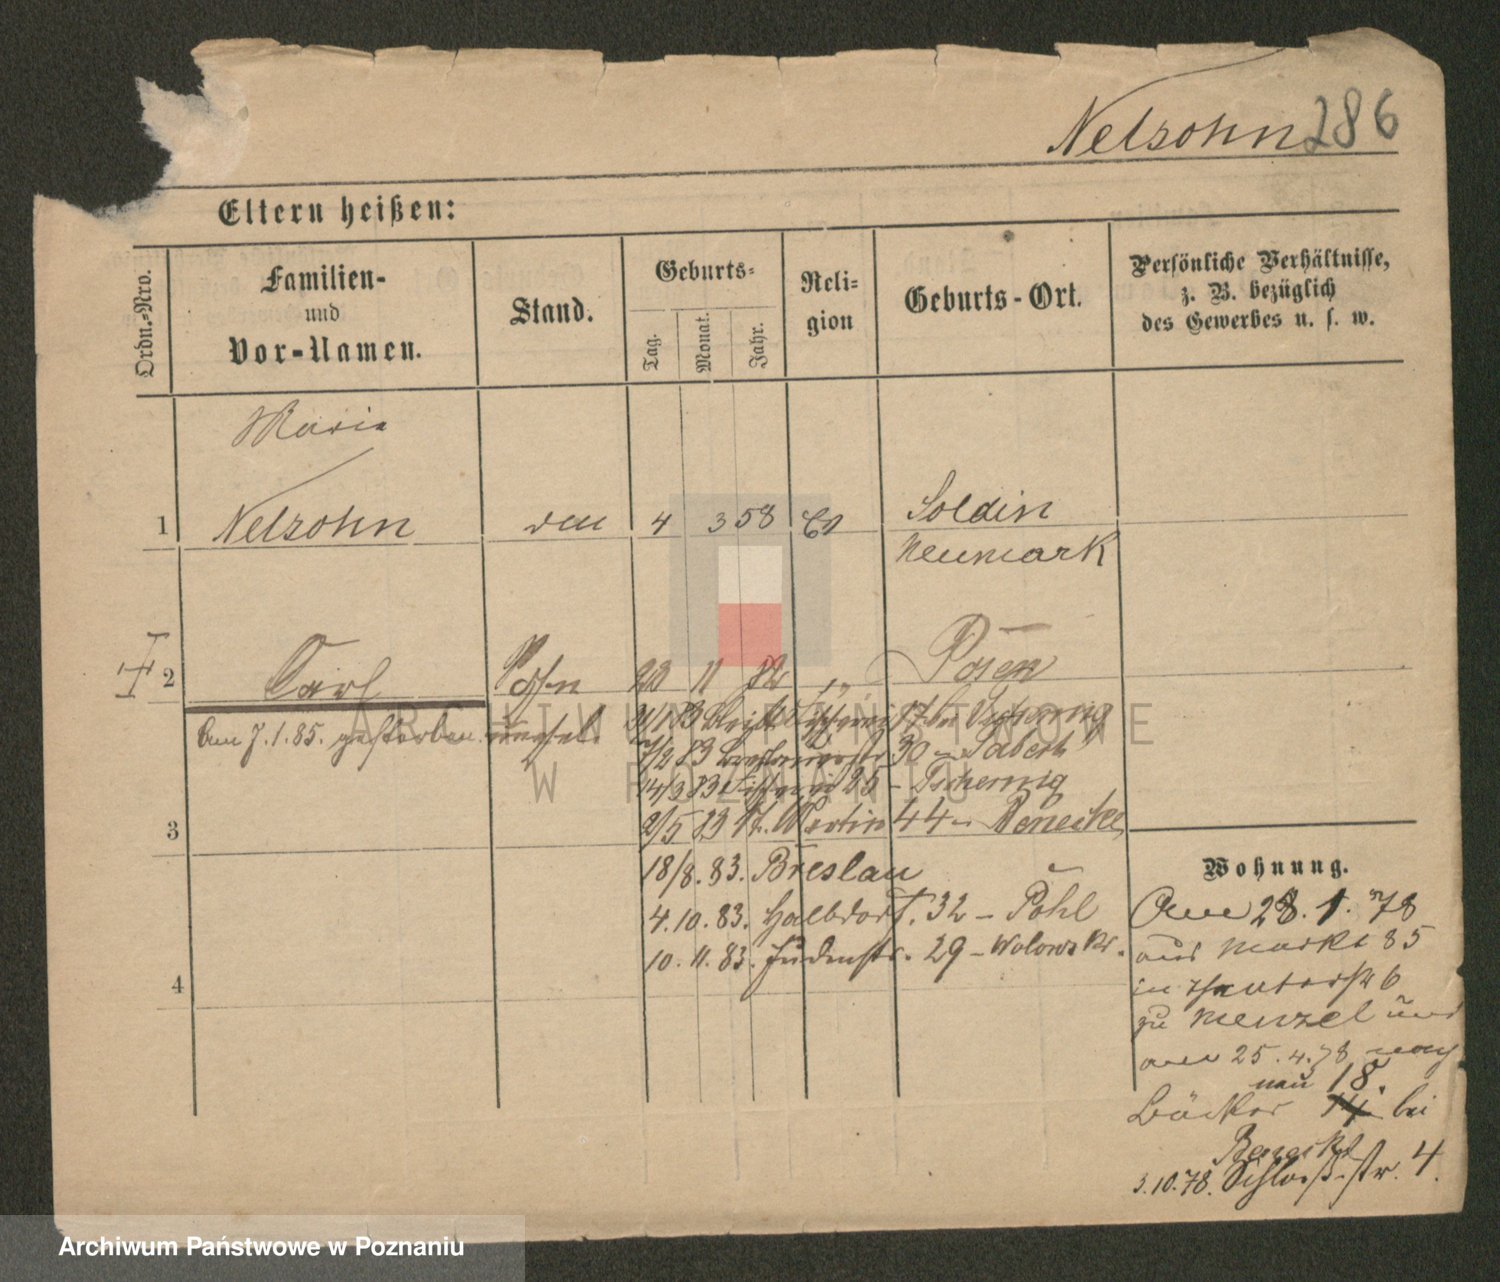 Nelsohn 286
Eltern heißen:
Ordn.-Nro.
Familien-
und
Vor-Namen.
Stand.
Geburts-
Tag.
Monat.
Jahr.
Reli-
gion
Geburts-Ort.
Persönliche Verhältnisse,
z. B. bezüglich
des Gewerbes u. s. w.
Marie
1 Nelsohn 4 3 58 Soldin
Neumark
2 Carl Sohn 20 11 82 Posen
Am 7.1.85. gestorben.
21/1 83 17 bei Tschernig
7/2 83 30 - Pabert
14/3 83 25 - Tschernig
3
2/5 83 St. Martin 44 - Benecke
18/8. 83. Breslau
4.10.83. Halbdorf. 32 - Pohl
10.11.83. Judenstr. 29 -
4
Wohnung.
Am 28. 1. 78
aus Markt 85
in 6
zu Menzel und
am 25.4.78 nach
neu 18.
Bäcker 14 bei
Benecke
3.10.78. Schloß-str. 4.
ARCHIWUM PAŃSTWOWE
W POZNANIU
Archiwum Państwowe w Poznaniu